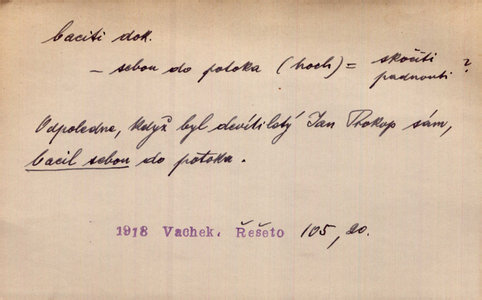 baciti dok.
– sebou do potoka (hoch) = skočiti
padnouti ?
Odpoledne, když byl devítiletý Jan Prokop sám,
bacil sebou do potoka.
1918 Vachek. Řešeto 105, 20.